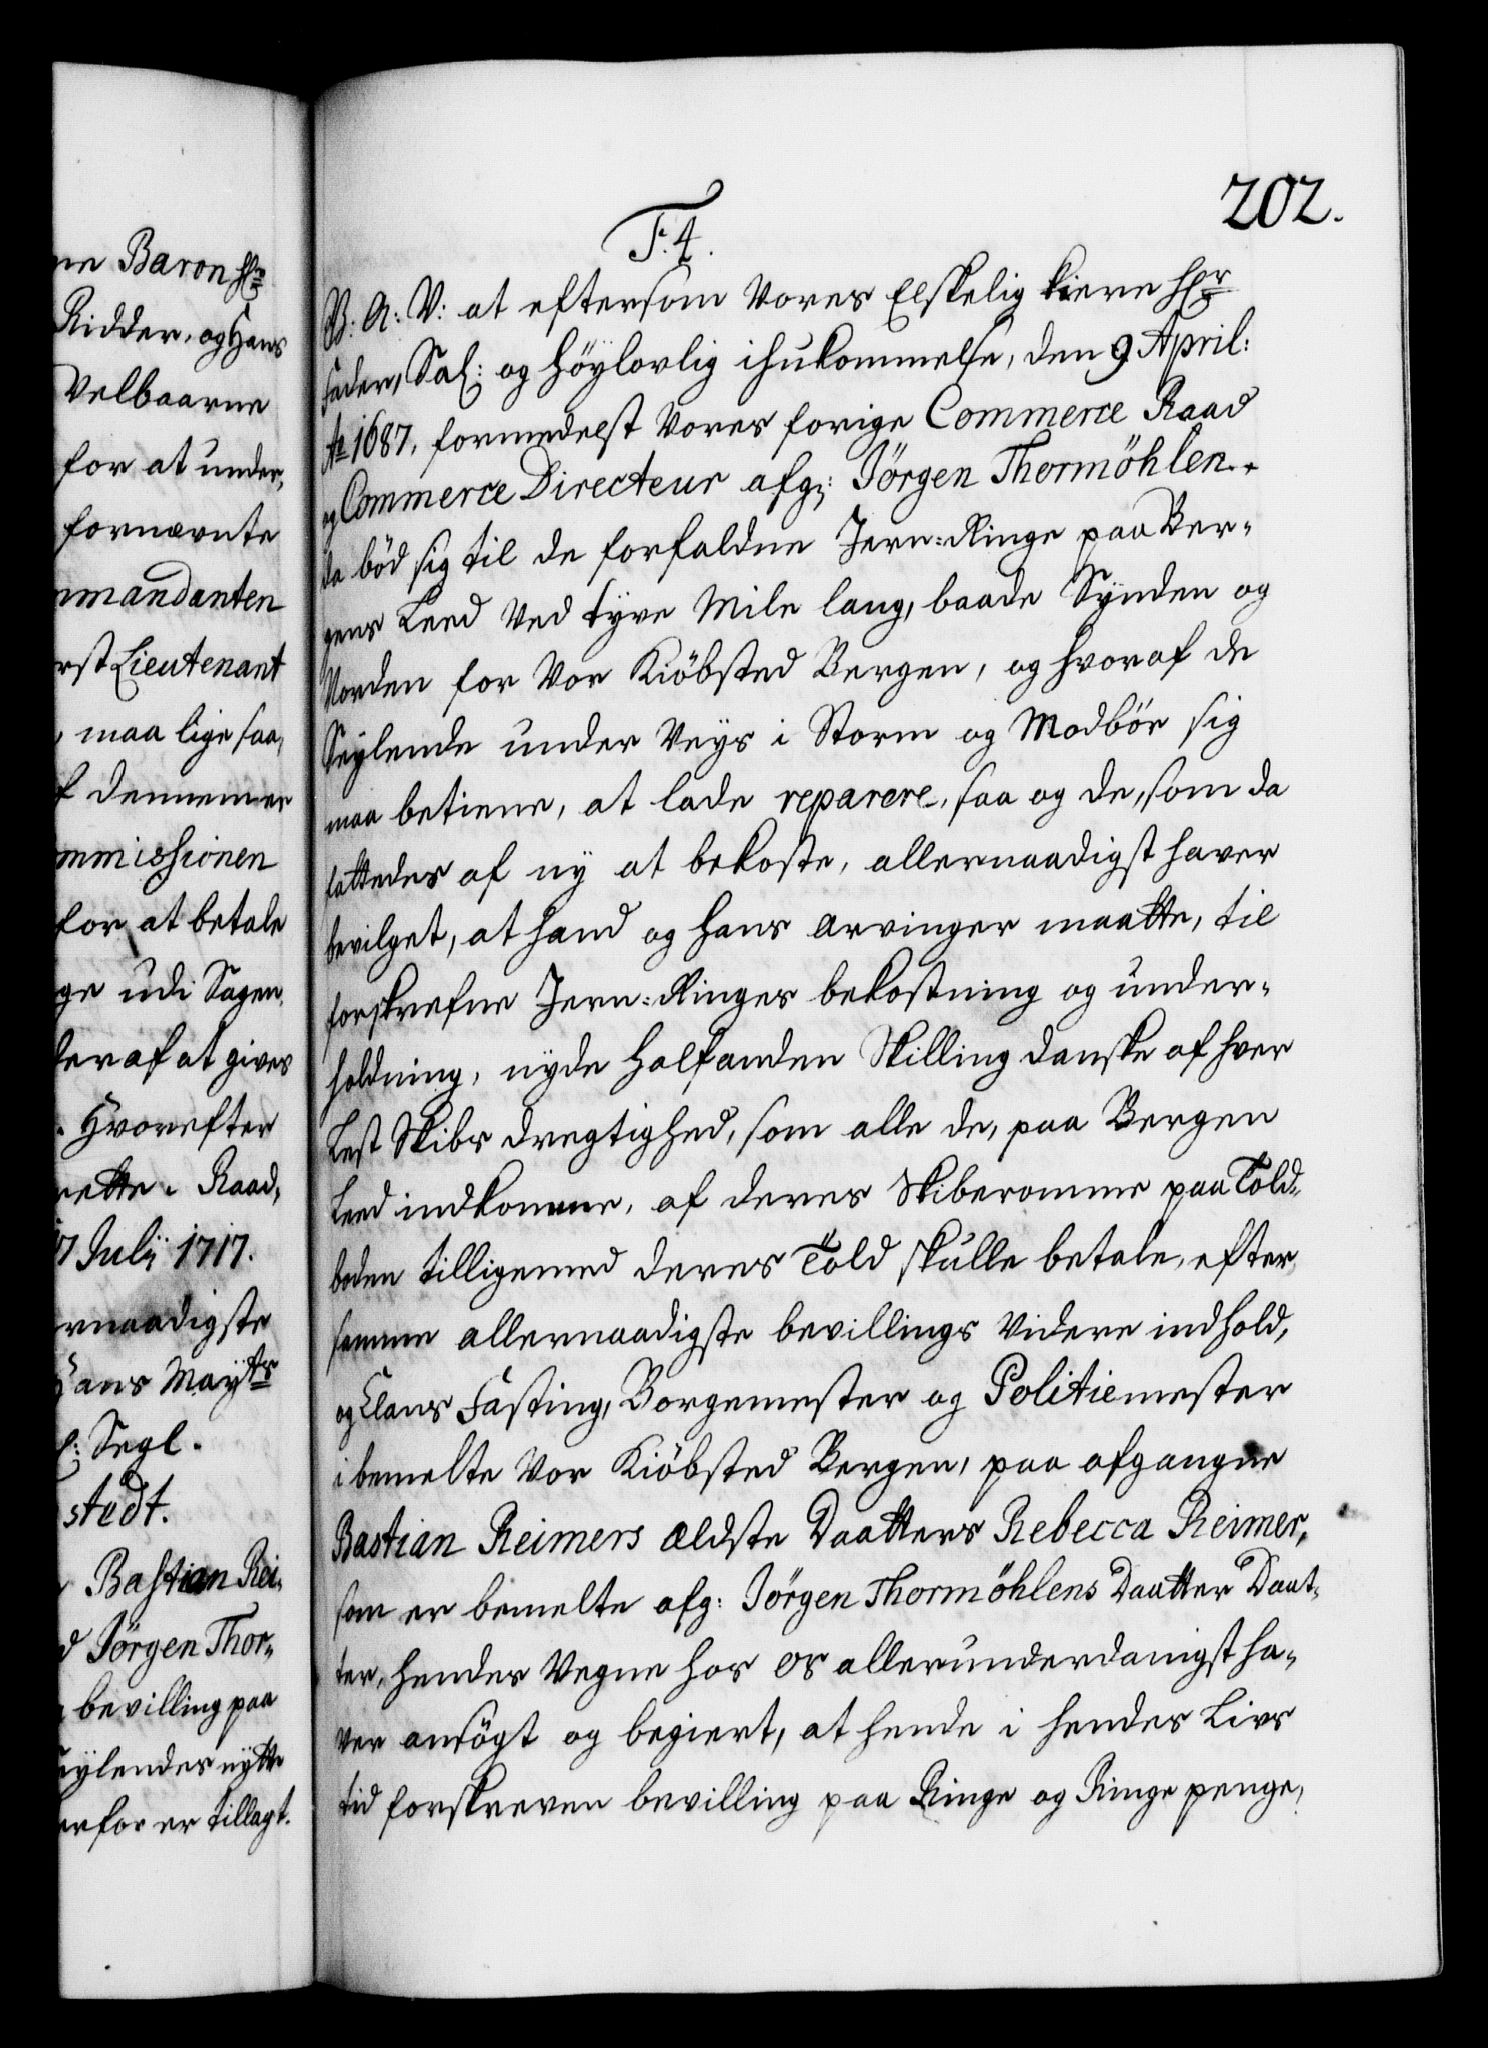 ne Baron Hr
Ridder, og Hans
Velbaarne
for at under,
fornævnte
mmandanten
rst Lieutenant
, maa lige saa,
f dennem er
mmissionen
for at betale
ge udi Sagen,
der af at gives
. Hvorefter
rette. Raad,
17 Julij 1717.
rnaadigste
Hans Mayts
l: Segl.
stedt.
Bastian Rei-
d Jörgen Thor-
bevilling paa
Seylendes nytte
erfor er tillagt.
202.
F. 4.
B: A: V: at eftersom Vores Elskelig kiere Hr
Fader, Sal: og høylovlig ihukommelse, den 9 April:
Ao 1687, formedelst Vores forige Commerce Raad
og Commerce Directeur afg: Jörgen Thormöhlen
da bød sig til de forfaldne Jern-Ringe paa Ber-
gens Leed ved tyve Mile lang, baade Synden og
Norden for Vor Kiöbsted Bergen, og hvoraf de
Seylende under Veys i Storm og Modbör sig
maa betiene, at lade reparere, saa og de, som da
fattedes af ny at bekoste, allernaadigst haver
bevilget, at hand og hans Arvinger maatte, til
forskrefne Jern-Ringes bekostning og under-
holdning, nyde halfanden Skilling danske af hver
Lest Skibs dregtighed, som alle de, paa Bergen
Leed indkomme, af deres Skiberomme paa Told-
boden tilligemed deres Told skulle betale, efter
samme allernaadigste bevillings Videre indhold,
og Claus Fasting, Borgemester og Politiemester
i bemelte Vor Kiöbsted Bergen, paa afgangne
Bastian Reimers ældste Daatters Rebecca Reimer,
som er bemelte afg: Jörgen Thormöhlens Daatter Daat-
ter, hendes Vegne hos os allerunderdanigst ha-
ver ansögt og begiert, at hende i hendes Livs
tid forskreven bevilling paa Ringe og Ringe penge,